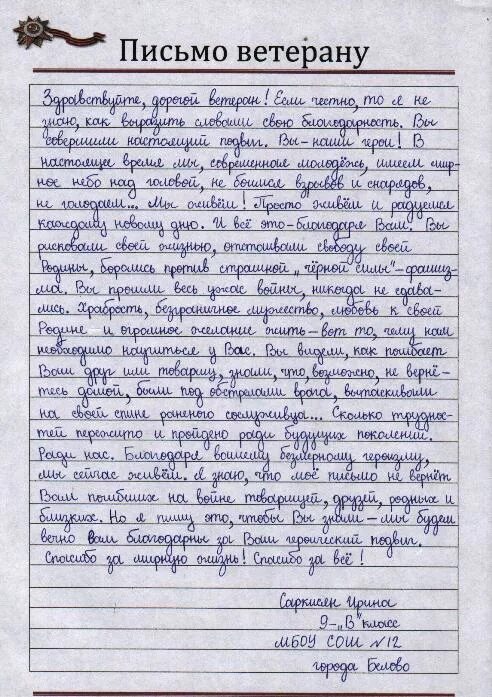 Письмо ветерану
Здравствуйте, дорогой ветеран! Если честно, то я не
знаю, как выразить словами свою благодарность. Вы
совершили настоящий подвиг. Вы-наши герои! В
настоящее время мы, современная молодёжь, имеем мир-
ное небо над головой, не боимся взрывов и снарядов,
не голодаем... Мы живём! Просто живём и радуемся
каждому новому дню. И всё это-благодаря Вам. Вы
рисковали своей жизнью, отстаивали свободу своей
Родины, боролись против страшной „чёрной силы"-фашиз-
ма. Вы прошли весь ужас войны, никогда не сдава-
лись. Храбрость, безграничное мужество, любовь к своей
Родине и огромное желание жить-вот то, чему нам
необходимо научиться у Вас. Вы видели, как погибает
Ваш друг или товарищ, знали, что, возможно, не вернё-
тесь домой, были под обстрелами врага, вытаскивали
на своей спине раненого сослуживца... Сколько трудно-
стей пережито и пройдено ради будущих поколений.
Ради нас. Благодаря вашему безмерному героизму,
мы сейчас живём. Я знаю, что моё письмо не вернёт
Вам погибших на войне товарищей, друзей, родных и
близких. Но я пишу это, чтобы Вы знали-мы будем
вечно вам благодарны за Ваш героический подвиг.
Спасибо за мирную жизнь! Спасибо за всё!
Саркисян Ирина
9-„В" класс
МБОУ СОШ №12
города Белово